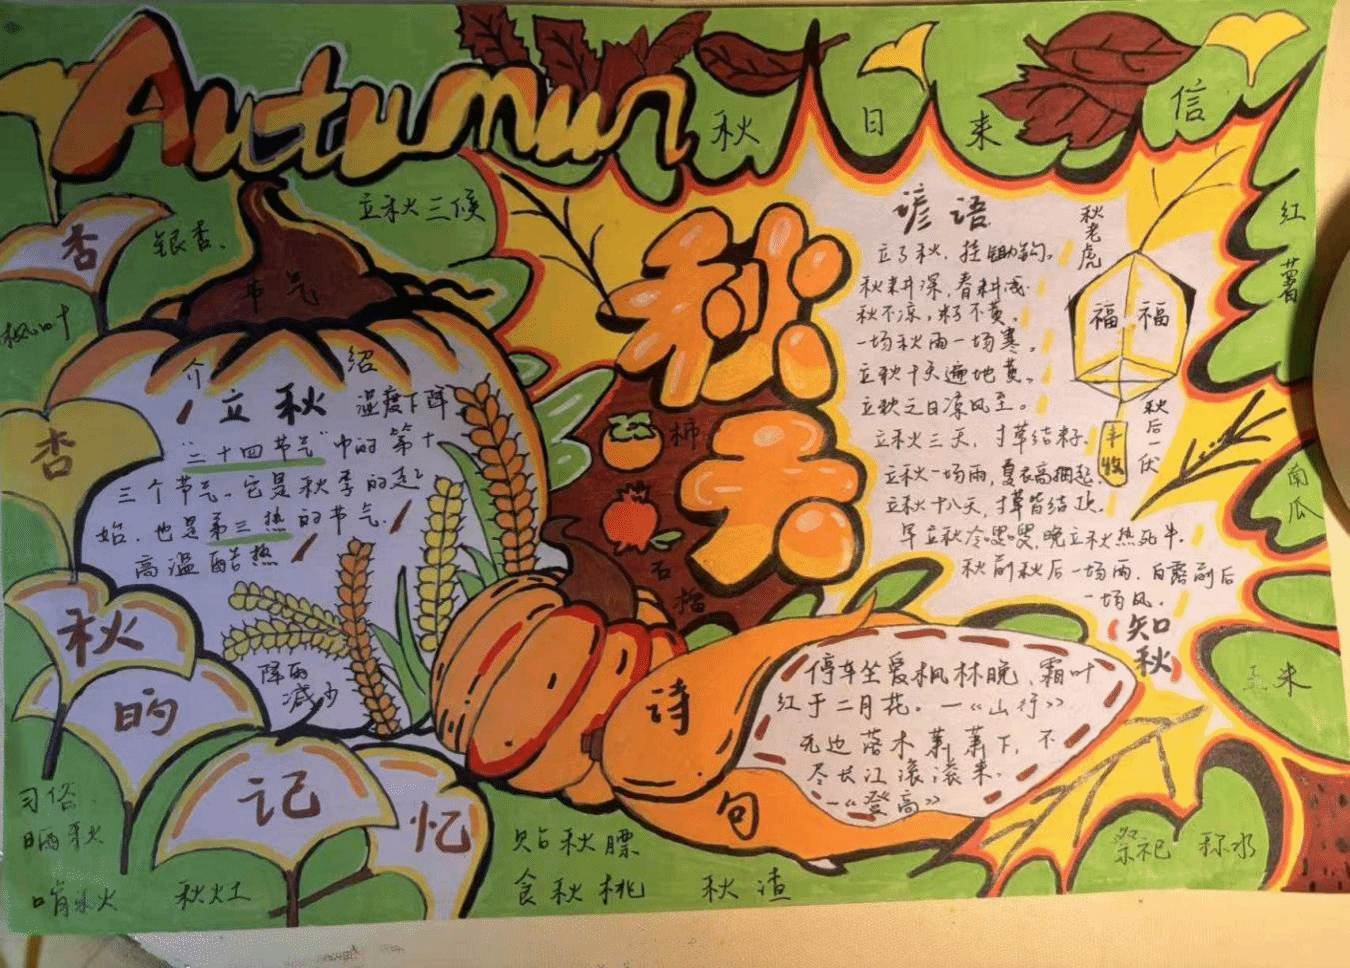 Autumn
秋日来信
立秋三候
杏
银杏、
枫叶
节气
介绍
立秋
温度下降
“二十四节气”中的第十
三个节气。它是秋季的起
始。也是第三热的节气.
高温酷热
降雨
减少
杏
秋
的
记
忆
习俗
晒秋
啃秋
秋灶
贴秋膘
食秋桃
秋渣
秋天
柿
石榴
谚语
立了秋，挂锄钩。
秋耕深，春耕浅.
秋不凉，籽不黄。
一场秋雨一场寒。
立秋十天遍地黄。
立秋之日凉风至。
立秋三天，寸草结籽.
立秋一场雨，夏衣高捆起.
立秋十八天，寸草皆结顶.
早立秋冷嗖嗖，晚立秋热死牛.
秋前秋后一场雨，白露前后
一场风.
秋老虎
福 福
丰收
秋后一伏
知秋
红薯
南瓜
玉米
诗句
停车坐爱枫林晚、霜叶
红于二月花。—《山行》
无边落木萧萧下，不
尽长江滚滚来.
—《登高》
祭祀
称水